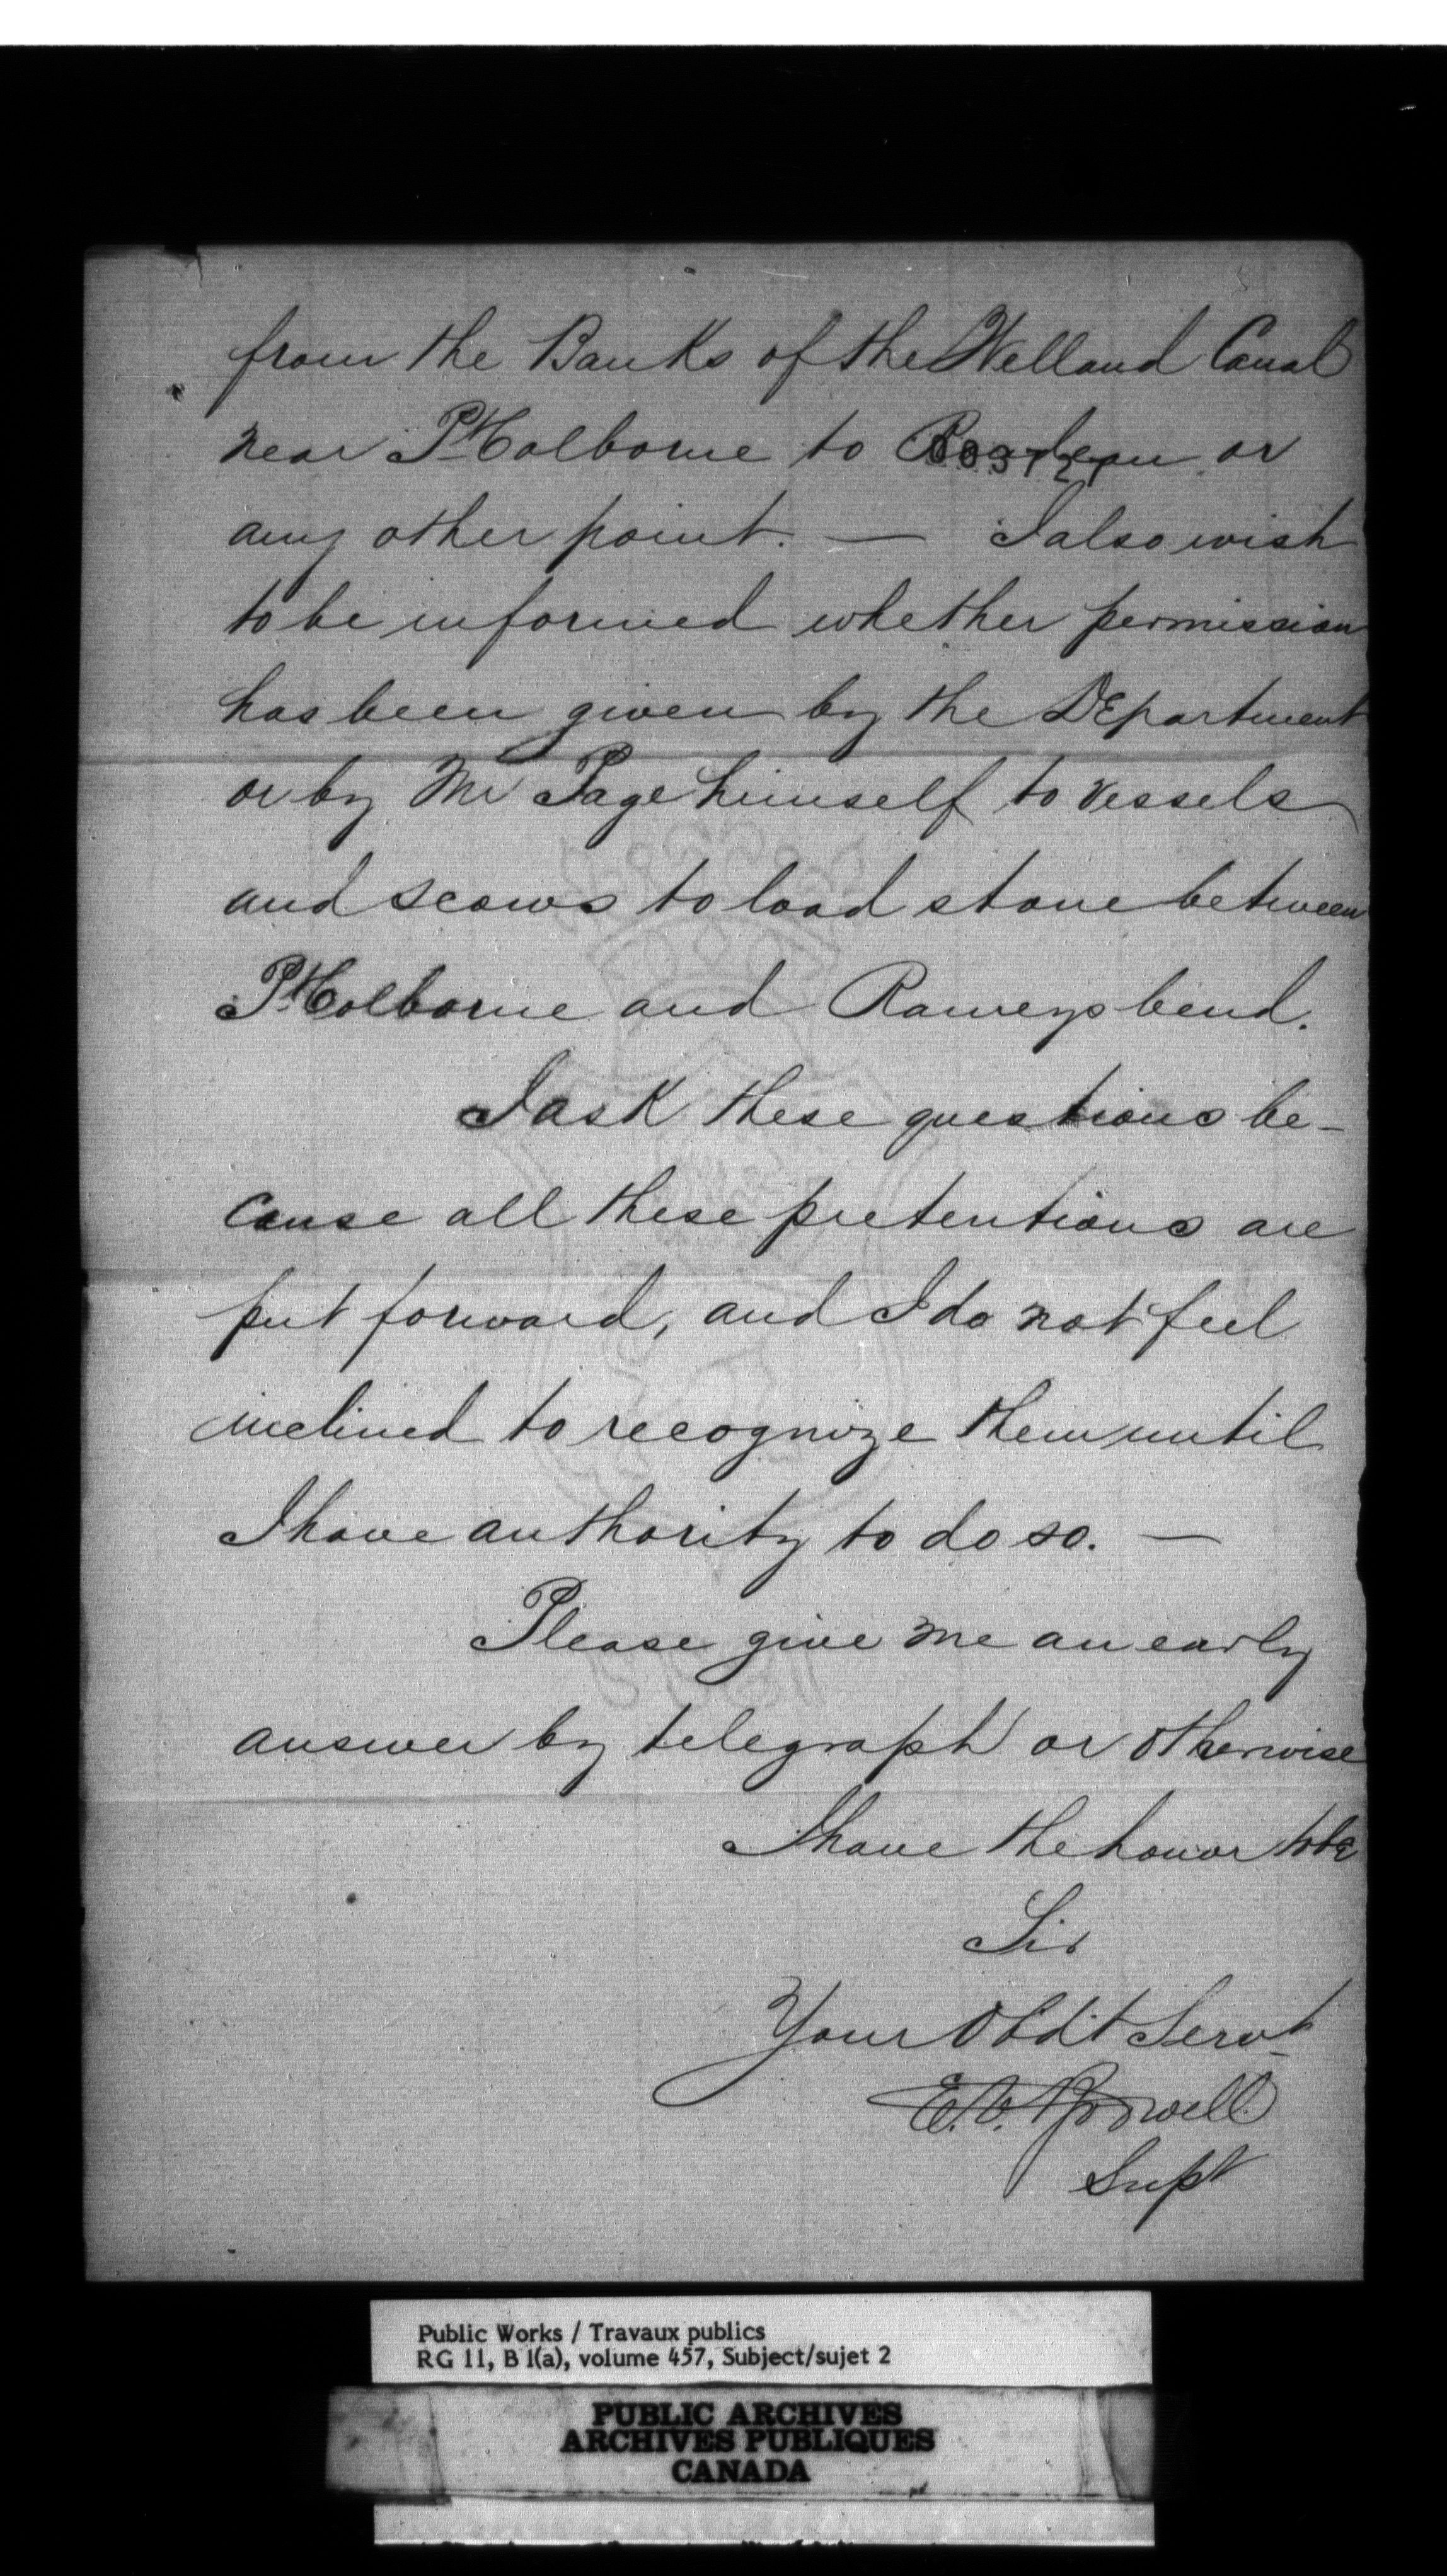 from the Banks of the Welland Canal
near Pt Colborne to or
any other point. — I also wish
to be informed whether permission
has been given by the Department
or by Mr Page himself to vessels
and scows to load stone between
Pt Colborne and Rameys bend.
I ask these questions be-
cause all these pretentions are
put forward, and I do not feel
inclined to recognize them until
I have authority to do so. —
Please give me an early
answer by telegraph or otherwise
I have the honor to be
Sir
Your Obdt Servt
E.V. Bodwell
Supt
Public Works / Travaux publics
RG 11, B 1(a), volume 457, Subject/sujet 2
PUBLIC ARCHIVES
ARCHIVES PUBLIQUES
CANADA